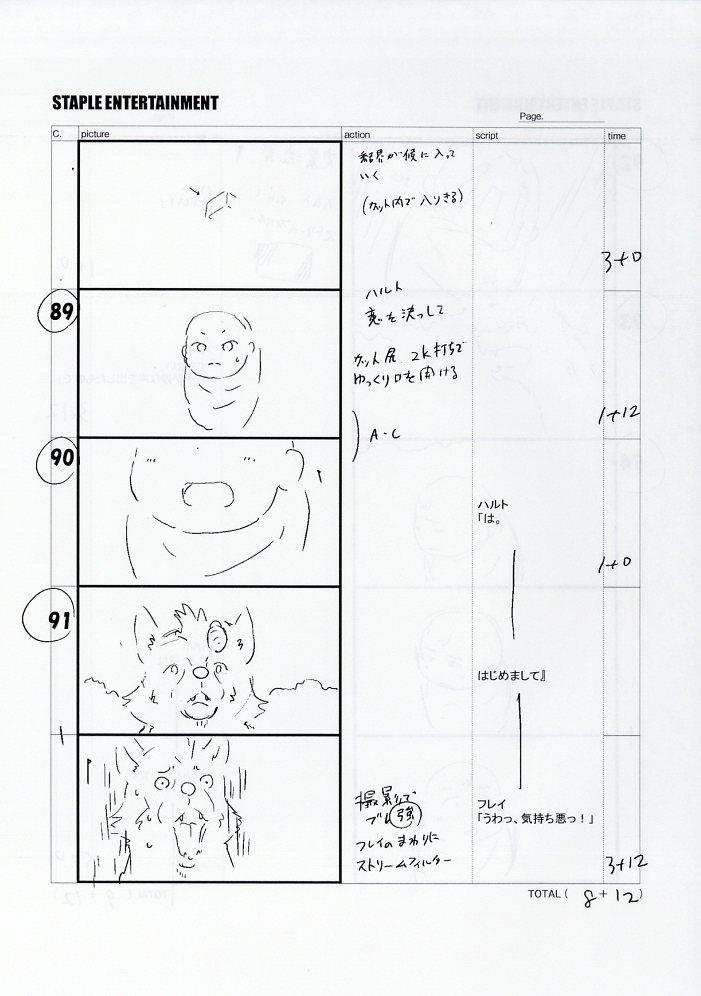 STAPLE ENTERTAINMENT
Page.
C. picture action script time
結界が喉に入って
いく
(カット内で入りきる)
3+0
89
ハルト
意を決っして
カット尻 2K打ちで
ゆっくり口を開ける
1+12
A・C
90
ハルト
「は。
1+0
91
はじめまして』
撮影で
ブレ強
フレイのまわりに
ストリームフィルター
フレイ
「うわっ、気持ち悪っ！」
3+12
TOTAL ( 8 + 12 )